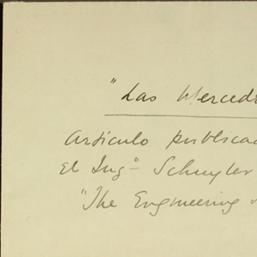 "Las Merced
articulo publica
El Ing- Schuyler
"The Engineering